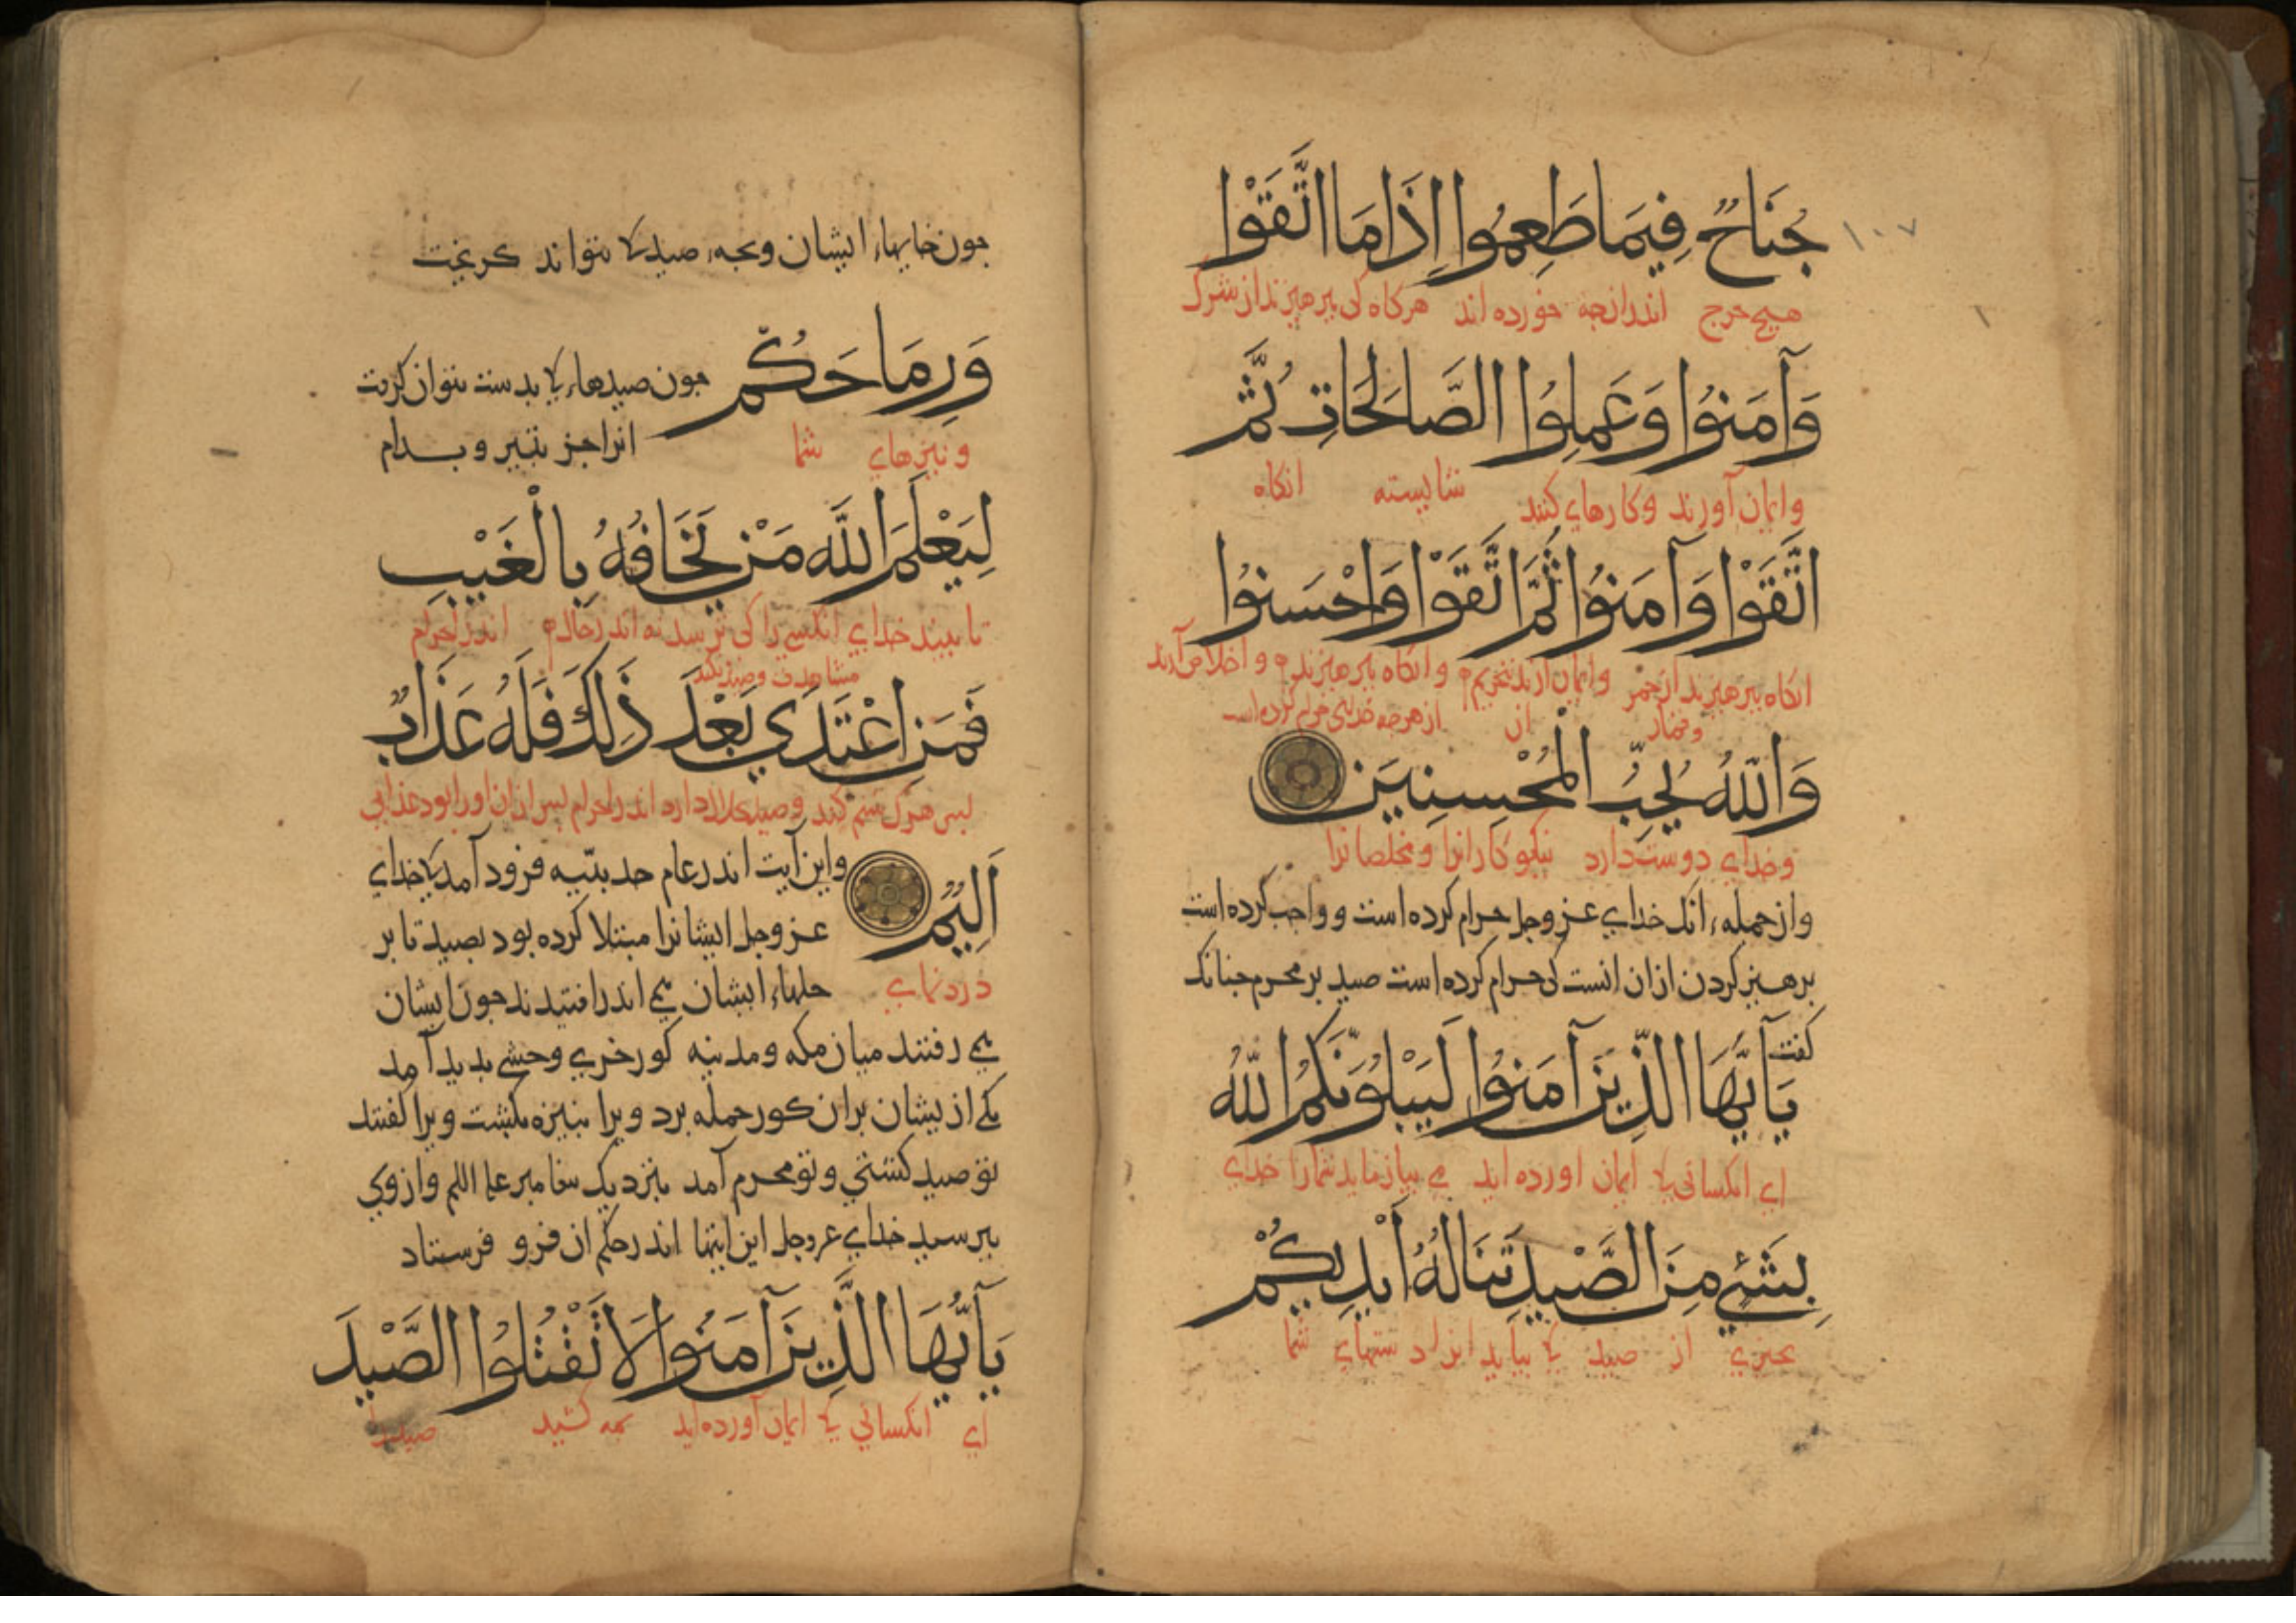 ١٠٧
جُنَاحٌ فِيمَا طَعِمُوا إِذَا مَا اتَّقَوْا
هیچ حرج اندرانجه خورده اند هرکاه کی بپرهیزند از شرک
وَآمَنُوا وَعَمِلُوا الصَّالِحَاتِ ثُمَّ
وایمان آورند وکارهاي کنند شایسته انکاه
اتَّقَوْا وَآمَنُوا ثُمَّ اتَّقَوْا وَاحْسَنُوا
انکاه بپرهیزند از خمر وایمان ارند بتحریم وانکاه بپرهیزند و اخلاص آرند
وقمار ان ازهرجه خدای حرام کرده است
وَاللّٰهُ يُحِبُّ الْمُحْسِنِينَ
وخداي دوست دارد نیکوکارانرا ومخلصانرا
وازجمله انک خداي عزوجل حرام کرده است وواجب کرده است
برهیز کردن ازان انست کی حرام کرده است صید بر محرم جنانک
کفت
يَاأَيُّهَا الَّذِينَ آمَنُوا لَيَبْلُوَنَّكُمُ اللّٰهُ
اي انکسانی کی ایمان اورده اید می بیازماید شمارا خداي
بِشَيْءٍ مِنَ الصَّيْدِ تَنَالُهُ أَيْدِيكُمْ
بجیزي از صید کی بیابد انرا دستهاي شما
جون خایهاء ایشان وبجه صید کی نتواند کریخت
وَرِمَاحُكُمْ جون صیدهاء کی بدست نتوان کرفت
انرا جز بتیر وبدام
ونیزهاي شما
لِيَعْلَمَ اللّٰهُ مَنْ يَخَافُهُ بِالْغَيْبِ
تا ببیند خداي انکسی را کی ترسد اندر حال اندر احرام
مشاهدت وصید نکند
فَمَنِ اعْتَدَي بَعْدَ ذَلِكَ فَلَهُ عَذَابٌ
بس هرک ستم کند وصید حلال دارد اندر احرام بس ازان اورا بود عذابی
أَلِيمٌ واین آیت اندر عام حدیبیه فرود آمد کی خداي
عزوجل ایشانرا مبتلا کرده بود بصید تا بر
دردناي حلهاء ایشان می اندر افتیدند جون ایشان
می رفتند میان مکه ومدینه کورخري وحشی بدید آمد
یکی ازیشان بران کور حمله برد ویرا بنیزه بکشت ویرا کفتند
تو صید کشتی وتو محرم آمد بنزدیک بیغامبر علیه السلم وازوي
ببرسید خداي عزوجل این ایتها اندر حکم ان فرو فرستاد
يَاأَيُّهَا الَّذِينَ آمَنُوا لَا تَقْتُلُوا الصَّيْدَ
اي انکسانی کی ایمان آورده اید مه کشید صید را